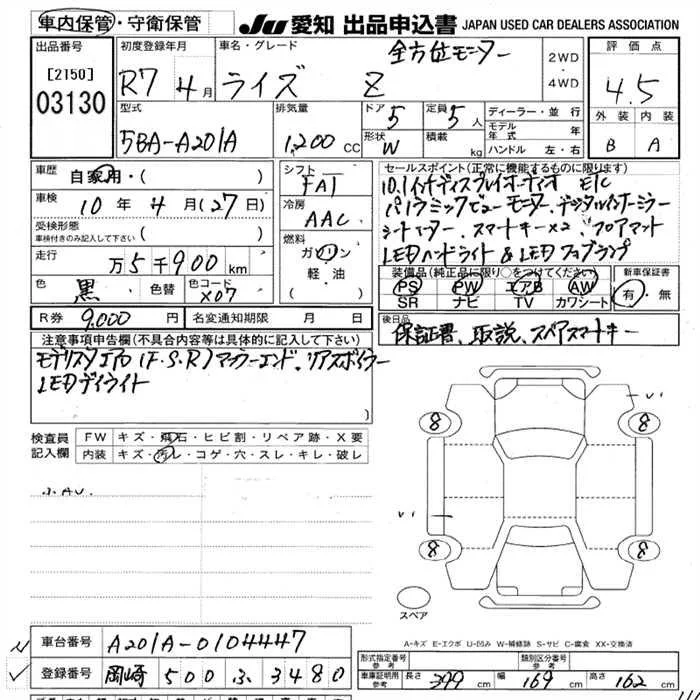 車内保管・守衛保管
JU 愛知 出品申込書 JAPAN USED CAR DEALERS ASSOCIATION
出品番号
[2150]
03130
初度登録年月
R7 4月
車名・グレード
ライズ Z
全方位モニター
2WD・4WD
評価点
4.5
外装 内装
B A
型式
5BA-A201A
排気量
1,200 CC
ドア 5
定員 5人
形状 W
積載 kg
ディーラー・並行
モデル年式 年
ハンドル 左・右
車歴 自家用・( )
車検 10年4月(27日)
受検形態
車検付きのみ記入して下さい ( )
走行 万5千900km
色 黒 色替 色コード X07
シフト FAT
冷房 AAC
燃料 ガソリン
軽油
セールスポイント(正常に機能するものに限ります)
10.1インチディスプレイオーディオ ETC
パノラミックビューモニター、デジタルインナーミラー
シートヒーター、スマートキー×2、フロアマット
LEDハンドライト & LEDフォグランプ
装備品(純正品に限り○をつけてください)
PS PW エアB AW
SR ナビ TV カワシート
新車保証書
有・無
R券 9,000円 名変通知期限 月 日
後日品
保証書、取説、スペアスマートキー
注意事項申告欄(不具合内容等は具体的に記入して下さい)
モデリスタエアロ(F.S.R)マフラーエンド、リアスポイラー
LEDデイライト
検査員記入欄
FW キズ・飛石・ヒビ割・リペア跡・X要
内装 キズ・汚レ・コゲ・穴・スレ・キレ・破レ
8 8
8 8
スペア
A-キズ E-エクボ U-凹み W-補修跡 S-サビ C-腐食 XX-交換済
車台番号 A201A-0104447
登録番号 岡崎 500 ふ 3480
形式指定番号 参考
類別区分番号 参考
車庫証明用 参考 長さ 399cm 幅 169cm 高さ 162cm